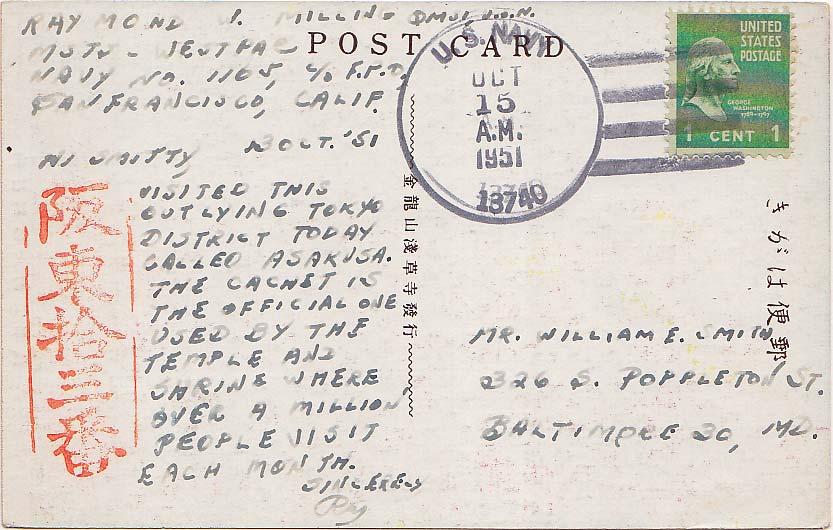 RAYMOND W. MILLING QMSI U.S.N.
MSTS - WESTPAC
NAVY NO. 1165, C/O F.P.O,
SAN FRANCISCO, CALIF.
POST CARD
U.S. NAVY
OCT
15
A.M.
1951
13740
UNITED
STATES
POSTAGE
GEORGE
WASHINGTON
1789-1797
1 CENT 1
13 OCT. '51
HI SMITTY
VISITED THIS
OUTLYING TOKYO
DISTRICT TODAY
CALLED ASAKUSA.
THE CACHET IS
THE OFFICIAL ONE
USED BY THE
TEMPLE AND
SHRINE WHERE
OVER A MILLION
PEOPLE VISIT
EACH MONTH.
SINCERELY
Ray
阪東拾三番
金龍山淺草寺發行
きがは便郵
MR. WILLIAM E. SMITH,
326 S. POPPLETON ST.
BALTIMORE 30, MD.